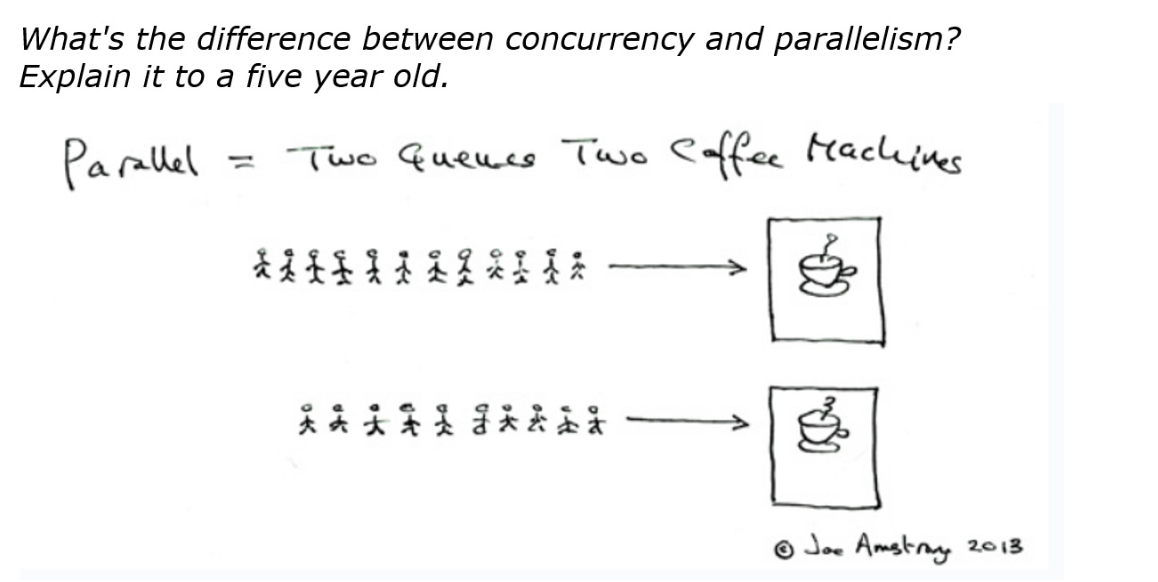 What's the difference between concurrency and parallelism?
Explain it to a five year old.
Parallel = Two Queues Two Coffee Machines
© Joe Armstrong 2013